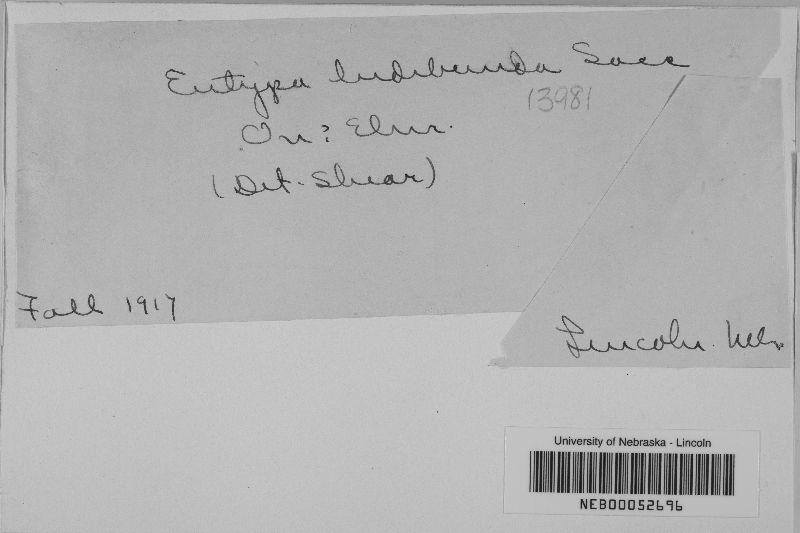 Eutypa ludibunda Sacc
13981
On? Elm.
(Det. Shear)
Fall 1917
Lincoln. Neb.
University of Nebraska - Lincoln
NEB00052696